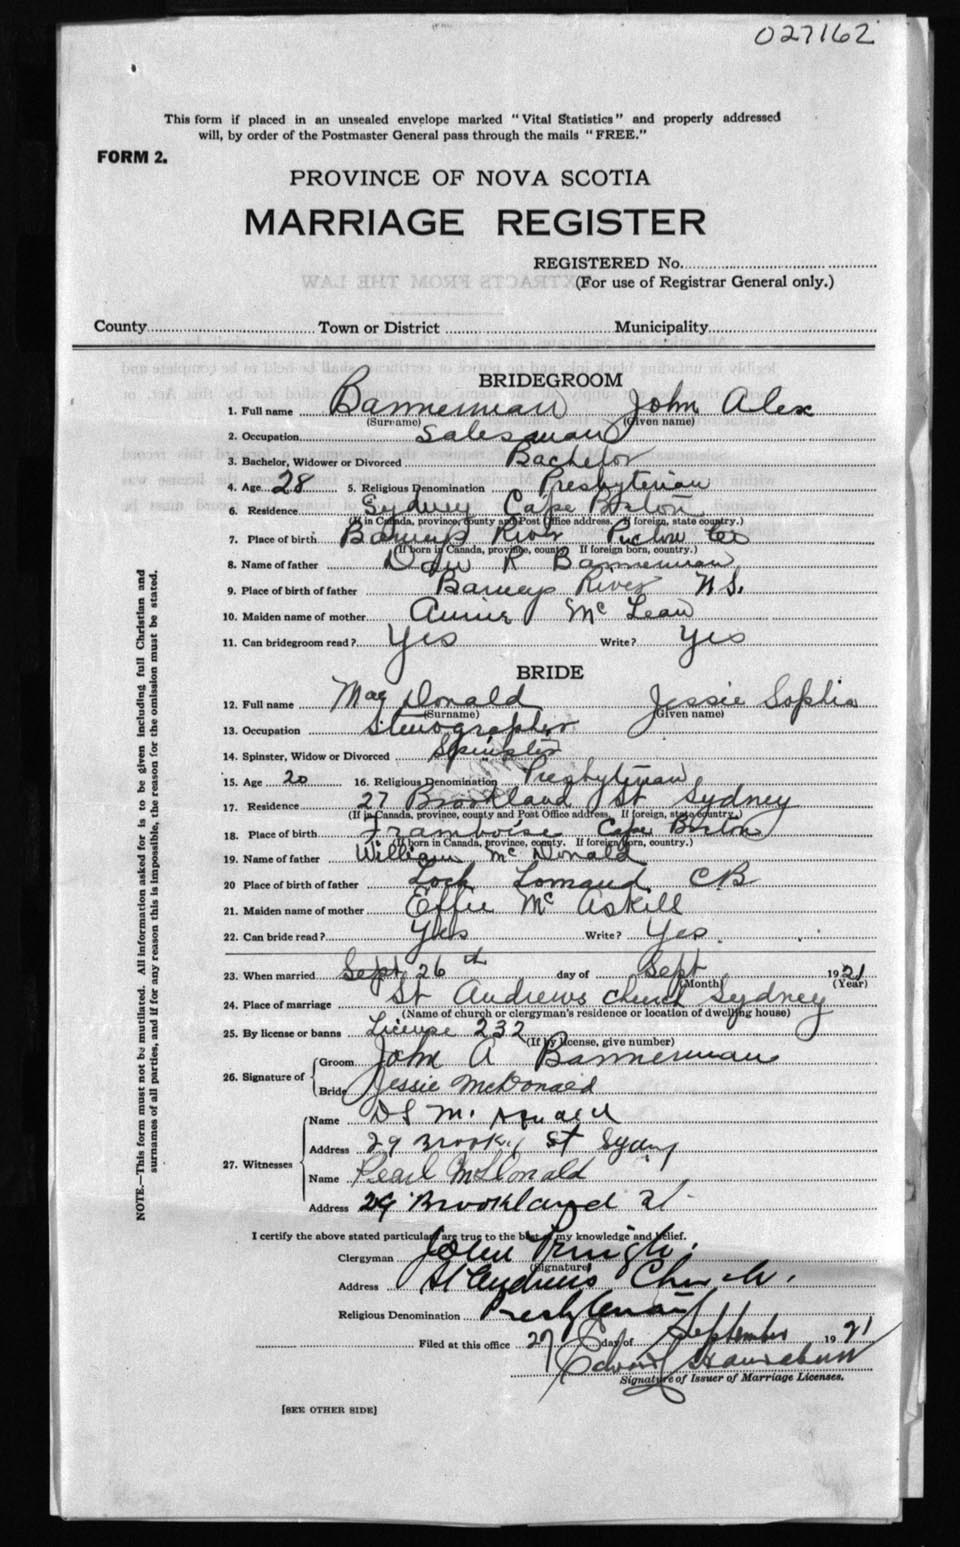 027162
This form if placed in an unsealed envelope marked "Vital Statistics" and properly addressed
will, by order of the Postmaster General pass through the mails "FREE."
FORM 2.
PROVINCE OF NOVA SCOTIA
MARRIAGE REGISTER
REGISTERED No.
(For use of Registrar General only.)
County Town or District Municipality
BRIDEGROOM
1. Full name Bannerman John Alex
(Surname) (Given name)
2. Occupation Salesman
3. Bachelor, Widower or Divorced Bachelor
4. Age 28 5. Religious Denomination Presbyterian
6. Residence Sydney Cape Breton
(If in Canada, province, county and Post Office address. If foreign, state country.)
7. Place of birth Barneys River Pictou Co
(If born in Canada, province, county. If foreign born, country.)
8. Name of father R Bannerman
9. Place of birth of father Barneys River N.S.
10. Maiden name of mother Annie McLean
11. Can bridegroom read? Yes Write? Yes
BRIDE
12. Full name MacDonald Jessie Sophia
(Surname) (Given name)
13. Occupation Stenographer
14. Spinster, Widow or Divorced Spinster
15. Age 20 16. Religious Denomination Presbyterian
17. Residence 27 Brookland St Sydney
(If in Canada, province, county and Post Office address. If foreign, state country.)
18. Place of birth Framboise Cape Breton
(If born in Canada, province, county. If foreign born, country.)
19. Name of father William McDonald
20 Place of birth of father Loch Lomand CB
21. Maiden name of mother Effie McAskill
22. Can bride read? Yes Write? Yes
23. When married Sept 26th day of Sept 1921
(Month) (Year)
24. Place of marriage St Andrews church Sydney
(Name of church or clergyman's residence or location of dwelling house)
25. By license or banns License 232
(If by license, give number)
26. Signature of
Groom John A Bannerman
Bride Jessie McDonald
27. Witnesses
Name DS McDonald
Address 29 St Sydney
Name Pearl McDonald
Address 29 Brookland St
I certify the above stated particulars are true to the best of my knowledge and belief.
Clergyman John Pringle
(Signature)
Address St Andrews Church.
Religious Denomination Presbyterian
Filed at this office 27 day of September 1921
Edward
Signature of Issuer of Marriage Licenses.
[SEE OTHER SIDE]
NOTE.—This form must not be mutilated. All information asked for is to be given including full Christian and
surnames of all parties, and if for any reason this is impossible, the reason for the omission must be stated.